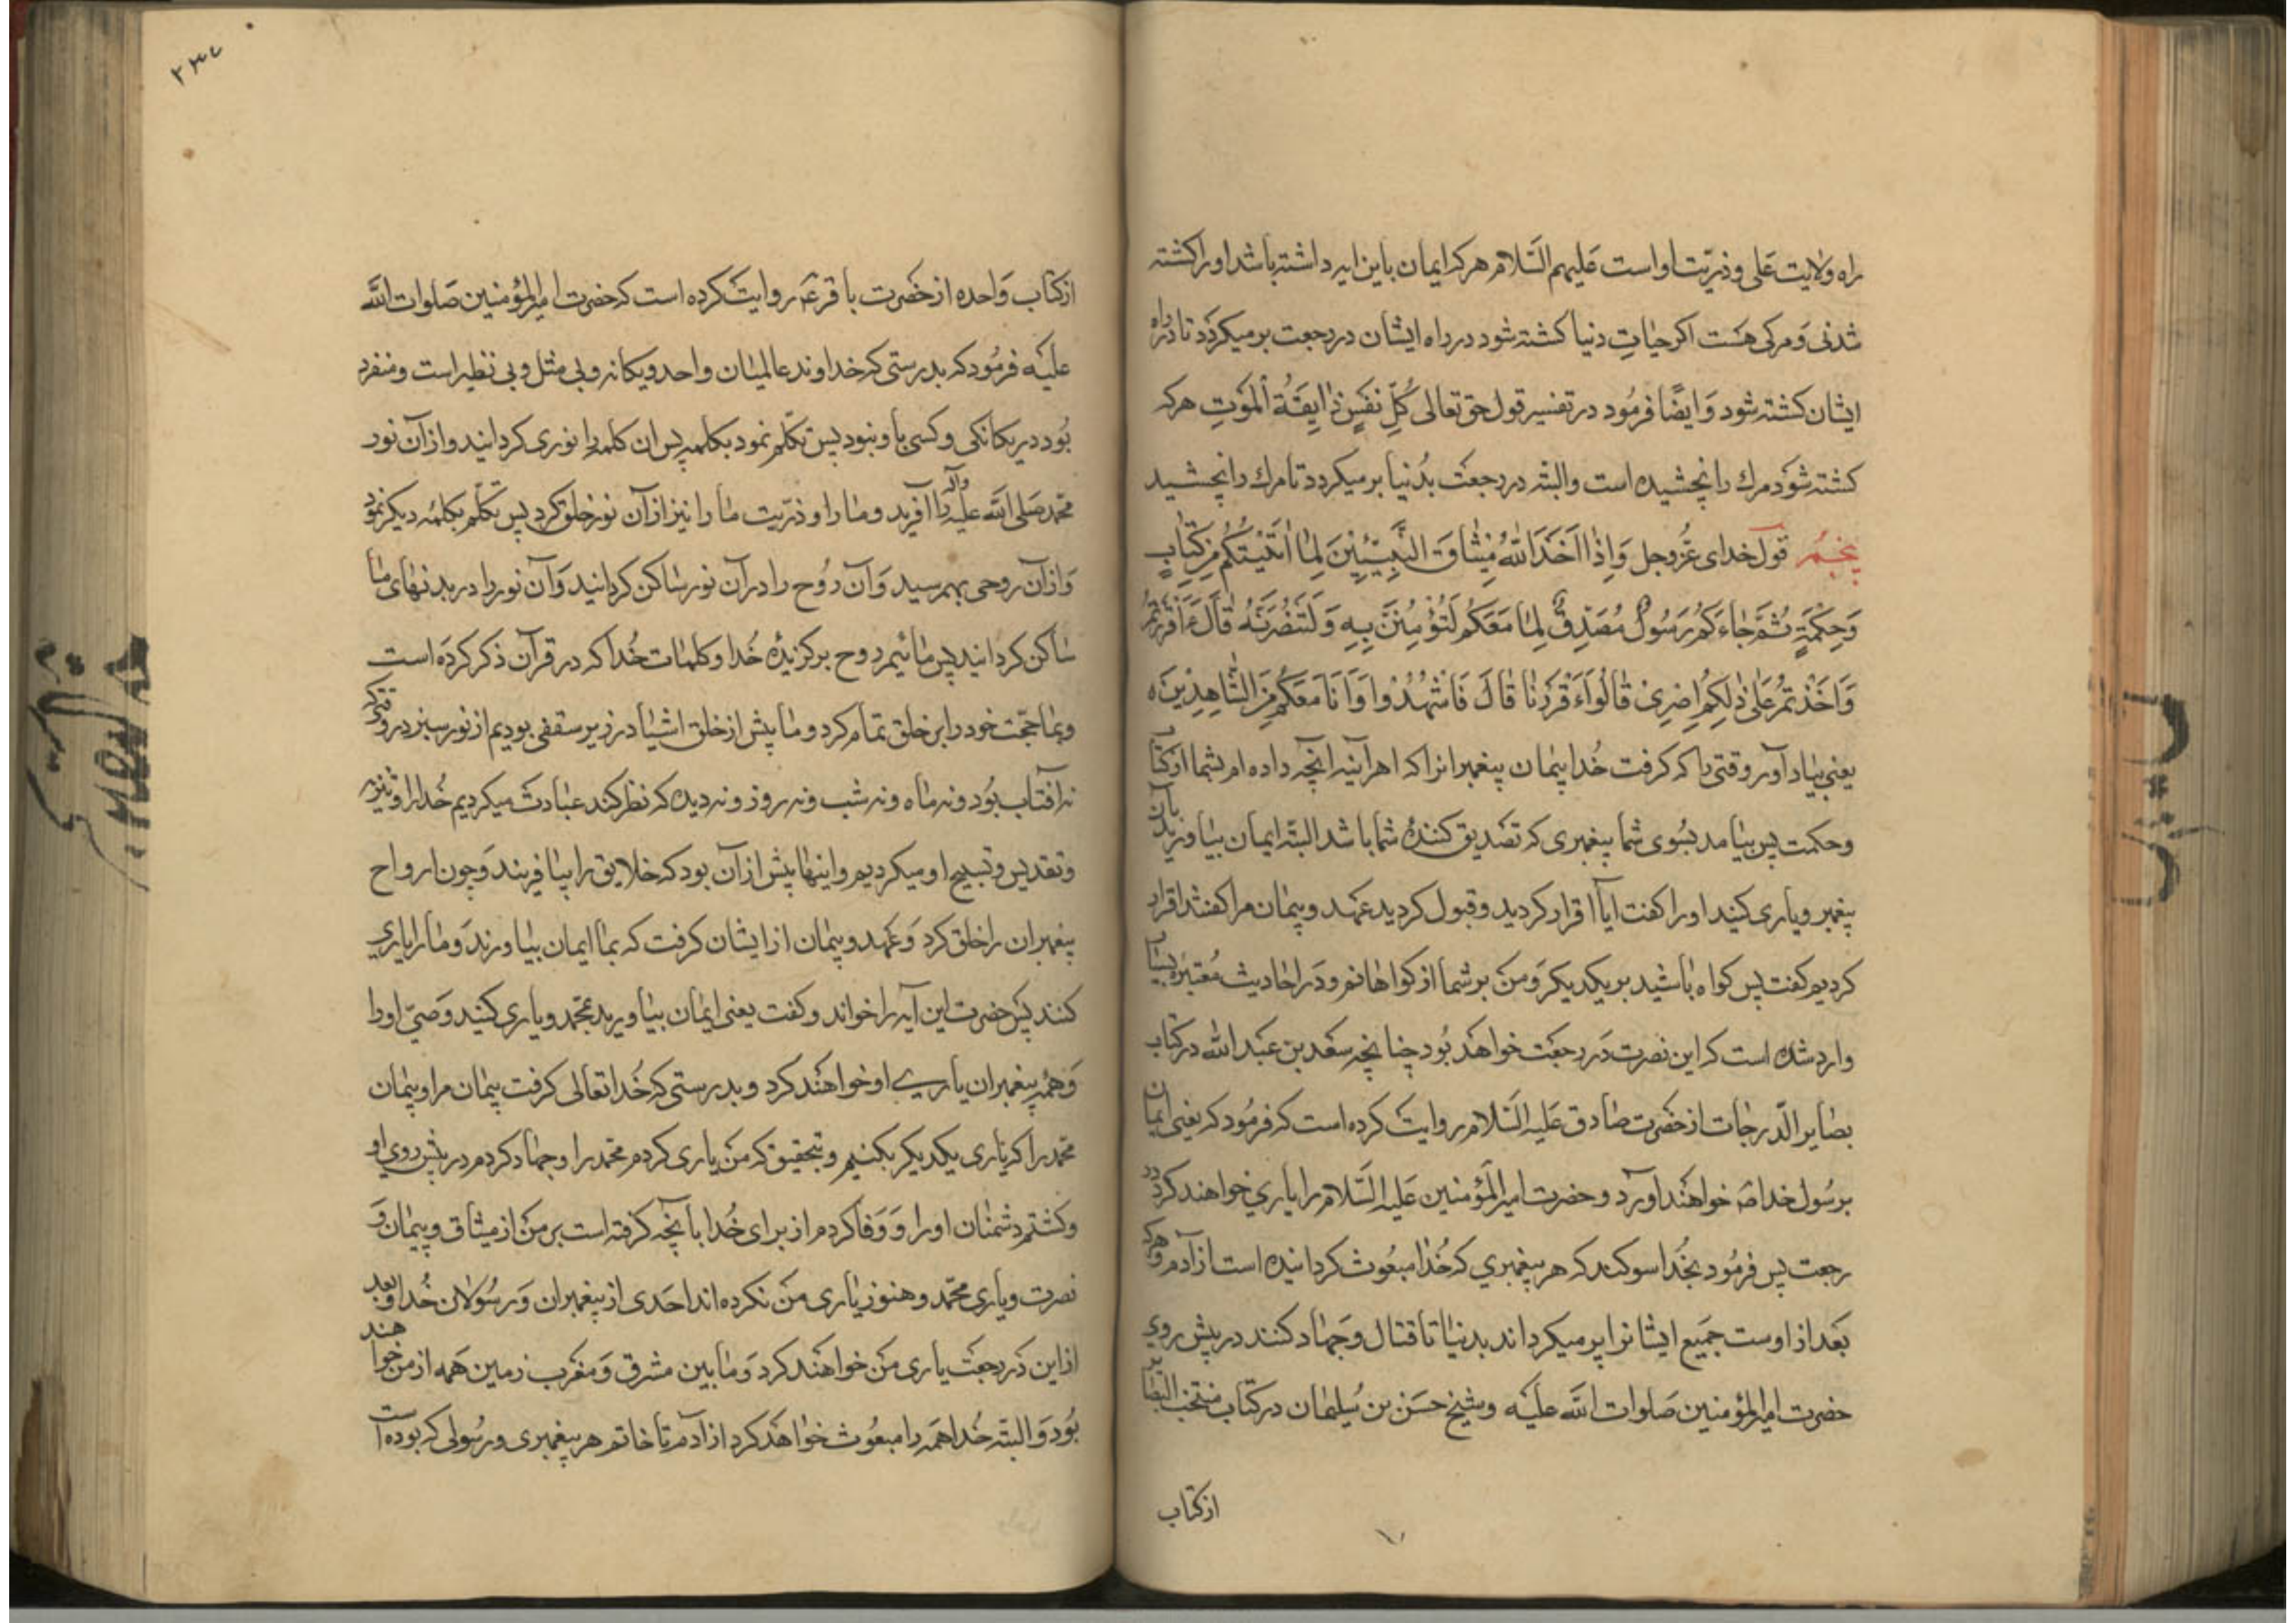 راه ولایت علی و ذرّیّت او است علیهم السّلام هر که ایمان باین ایه داشته باشد او را کشته
شدنی و مرکی هست اکر حیات دنیا کشته شود در راه ایشان در رجعت بر میکردد تا در راه
ایشان کشته شود وَ ایضًا فرمُود در تفسیر قول حق تعالی کُلِّ نَفْسٍ ذٰایِقَةُ الْمَوْتِ هر که
کشته شود مرك را نچشیده است و البته در رجعت بدُنیا بر میکردد تا مرك را بچشید
پنجم قول خدای عزّوجل وَاِذْ اَخَذَ اللّٰهُ مِیْثٰاقَ النَّبِیّٖینَ لِمٰا اٰتَیْتُکُمْ مِنْ کِتٰابٍ
وَحِکْمَةٍ ثُمَّ جٰاءَکُمْ رَسُولٌ مُصَدِّقٌ لِمٰا مَعَکُمْ لَتُؤْمِنُنَّ بِهِ وَلَتَنْصُرُنَّهُ قٰالَ ءَاَقْرَرْتُمْ
وَاَخَذْتُمْ عَلٰی ذٰلِکُمْ اِصْرِیْ قٰالُوا اَقْرَرْنٰا قٰالَ فَاشْهَدُوْا وَاَنَا مَعَکُمْ مِنَ الشّٰاهِدِیْنَ
یعنی بیاد آور وقتی را که کرفت خُدا پیمان پیغمبرانرا که اهر آینه آنچه داده ام بشما از کتاب
و حکمت پس بیامد بسُوی شما پیغمبری که تصدیق کنندهٔ شما باشد البتّه ایمان بیاورید بآن
پیغمبر و یاری کنید او را کفت ایا اقرار کردید و قبول کردید عهد و پیمان مرا کفتند اقرار
کردیم کفت پس کواه باشید بر یکدیکر وَ من بر شما از کواهانم و در احادیث مُعتبرهٔ بسیار
وارد شده است که این نصرت در رجعت خواهد بُود چنانچه سعد بن عبد اللّه در کتاب
بصایر الدّرجات از حضرت صادق علیه السّلام روایت کرده است که فرمُود که یعنی ایمان
برسُول خدا ص خواهند اورد و حضرت امیر المؤمنین علیه السّلام را یاري خواهند کرد در
رجعت پس فرمُود بخُدا سوکند که هر پیغمبري که خُدا مبعُوث کردانیده است از آدم و هر که
بعد از اوست جمیع ایشانرا بر میکرداند بدنیا تا قتال و جهاد کنند در پیش روی
حضرت امیر المؤمنین صلوات اللّه علیه و شیخ حسَن بن سُلیمان در کتاب منتخب البصایر
از کتاب
۲۳۷
از کتاب واحده از حضرت باقر ع روایت کرده است که حضرت امیر المؤمنین صلوات اللّه
علیه فرمُود که بدرستی که خداوند عالمیان واحد و یکانه و بی مثل و بی نظیر است و منفرد
بُود در یکانکی و کسی با او نبود پس تکلّم نمود بکلمه پس ان کلمه را نوری کردانید و از آن نور
محمّد صلی اللّه علیه وآله را آفرید و ما را و ذرّیت ما را نیز از آن نور خلق کرد پس تکلّم بکلمهٔ دیکر نمود
وَ از آن روحی بهم رسید وَ آن رُوح را در آن نور ساکن کردانید وَ آن نور را در بدنهای ما
ساکن کردانید پس مائیم روح برکزیدهٔ خُدا و کلمات خُدا که در قرآن ذکر کرده است
و بما حجّت خود را بر خلق تمام کرد و ما پیش از خلق اشیا در زیر سقفی بودیم از نور سبز در وقتی که
نه آفتاب بُود و نه ماه و نه شب و نه روز و نه دیده که نظر کند عبادت میکردیم خُدا را و تنزیه
و تقدیس و تسبیح او میکردیم و اینها پیش از آن بود که خلایق را بیافریند وَ چون ارواح
پیغمبران را خلق کرد وَ عهد و پیمان از ایشان کرفت که بما ایمان بیاورند وَ ما را یاري
کنند پس حضرت این آیه را خواند و کفت یعنی ایمان بیاورید بمحمّد و یاری کنید وَصیّ او را
وَ همهٔ پیغمبران یاري او خواهند کرد و بدرستی که خُدا تعالی کرفت پیمان مرا و پیمان
محمّد را که یاری یکدیکر بکنیم و بتحقیق که من یاری کردم محمّد را و جهاد کردم در پیش روي او
و کشتم دشمنان او را وَ وفا کردم از برای خُدا بآنچه کرفته است بر من از میثاق و پیمان وَ
نصرت و یاری محمّد و هنوز یاری من نکرده اند احدی از پیغمبران وَ رسُولان خُدا و بعد
از این در رجعت یاری من خواهند کرد وَ ما بین مشرق وَ مغرب زمین همه از من خواهند
بُود وَ البته خُدا همه را مبعُوث خواهد کرد از آدم تا خاتم هر پیغمبری و رسُولی که بوده است